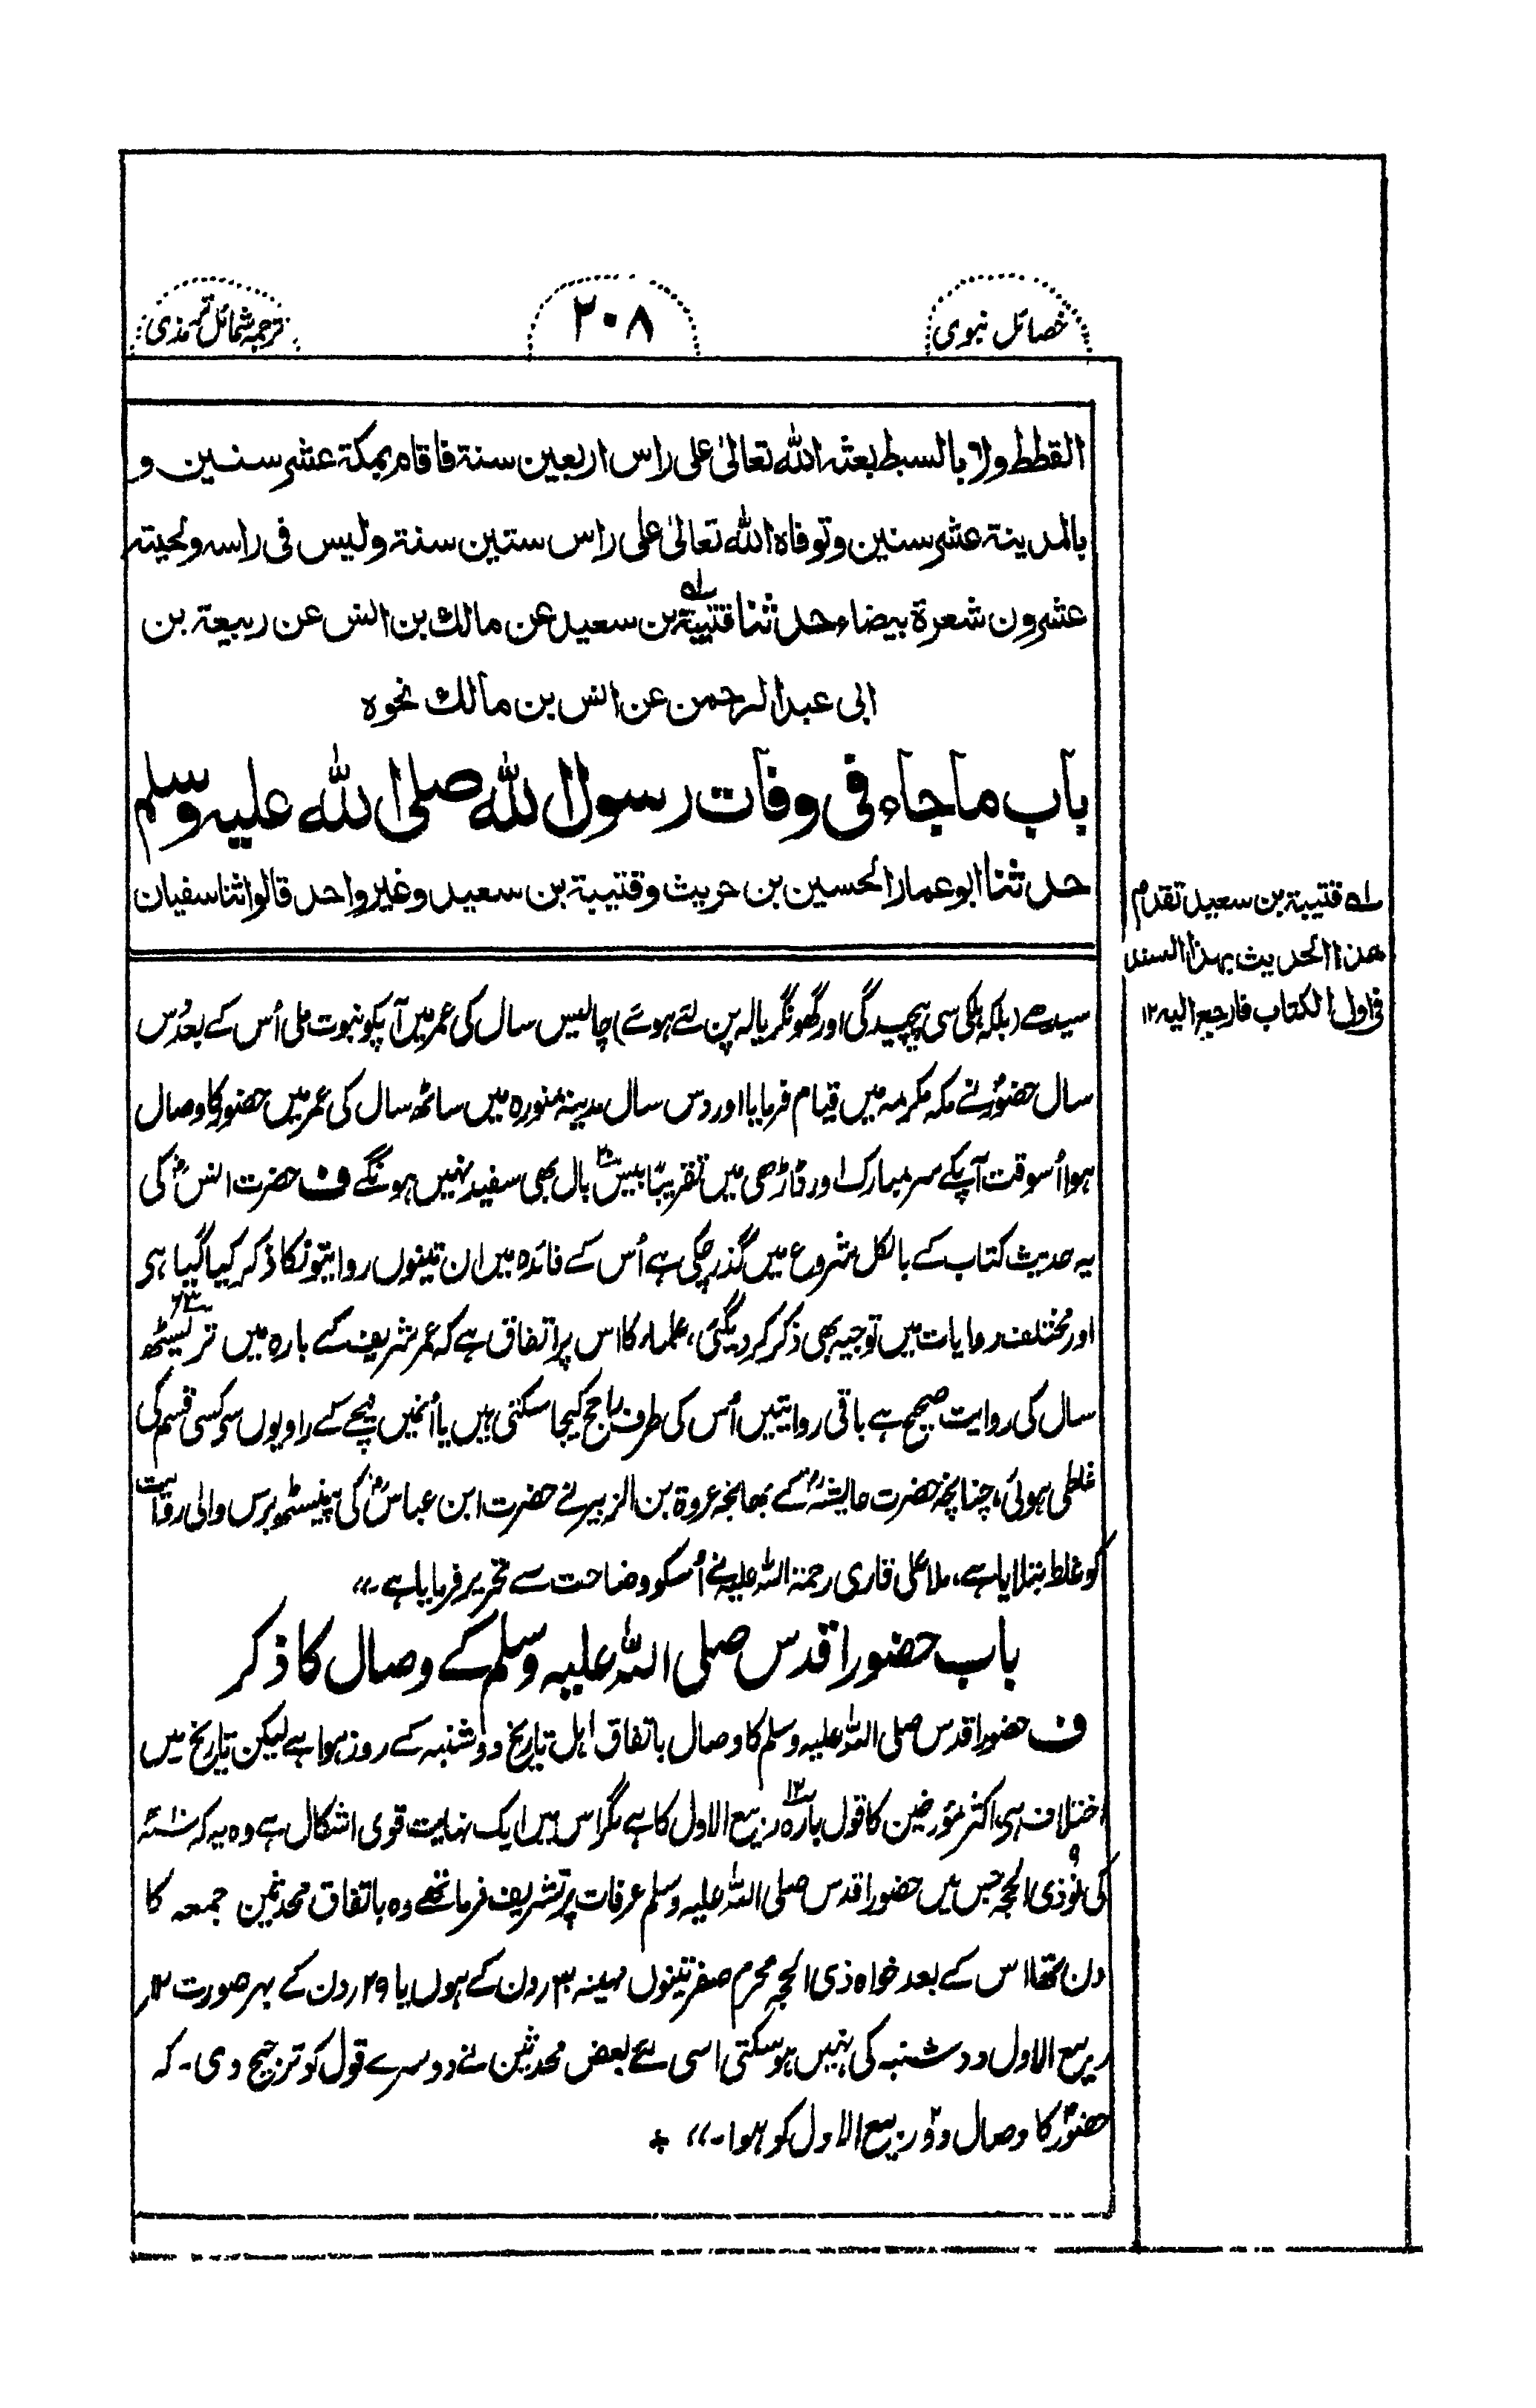 خصائل نبوی
۲۰۸
ترجمہ شمائل ترمذی
القطط ولا بالسبط بعثه الله تعالیٰ علی راس اربعین سنة فاقام بمکة عشر سنین و
بالمدینة عشر سنین وتوفاه الله تعالیٰ علی راس ستین سنة ولیس فی راسه ولحیته
عشرون شعرة بیضاء حدثنا قتیبة بن سعید عن مالك بن انس عن ربیعة بن
ابی عبد الرحمن عن انس بن مالك نحوه
باب ماجاء فی وفات رسول الله صلی الله علیه وسلم
حدثنا ابو عمار الحسین بن حریث وقتیبة بن سعید وغیر واحد قالوا ثنا سفیان
له قتیبة بن سعید تقدم
هذا الحدیث بهذا السند
فی اول الکتاب فارجع الیه ۱۲
سیدھے (بلکہ ہلکی سی پیچیدگی اور گھونگریالہ پن لئے ہوئے) چالیس سال کی عمر میں آپکو نبوت ملی اُس کے بعد دس
سال حضورؐ نے مکہ مکرمہ میں قیام فرمایا اور دس سال مدینہ منورہ میں ساٹھ سال کی عمر میں حضورؐ کا وصال
ہوا اُسوقت آپکے سر مبارک اور ڈاڑھی میں تقریباً بیس ۲۰ بال بھی سفید نہیں ہونگے ف حضرت انسؓ کی
یہ حدیث کتاب کے بالکل شروع میں گذر چکی ہے اُس کے فائدہ میں ان تینوں روایتونکا ذکر کیا گیا ہی
اور مختلف روایات میں توجیہ بھی ذکر کر دیگئی، علماء کا اس پر اتفاق ہے کہ عمر شریف کے بارہ میں تریسٹھ ۶۳
سال کی روایت صحیح ہے باقی روایتیں اُس کی طرف راجح کیجا سکتی ہیں یا اُنمیں نیچے کے راویوں سے کسی قسم کی
غلطی ہوئی، چنانچہ حضرت عایشہؓ کے بھانجہ عروة بن الزبیر نے حضرت ابن عباسؓ کی پینسٹھ برس والی روایت
کو غلط بتلایا ہے، ملا علی قاری رحمۃ اللہ علیہ نے اُسکو وضاحت سے تحریر فرمایا ہے۔،،
باب حضور اقدس صلی اللہ علیہ وسلم کے وصال کا ذکر
ف حضور اقدس صلی اللہ علیہ وسلم کا وصال باتفاق اہل تاریخ دوشنبہ کے روز ہوا ہے لیکن تاریخ میں
اختلاف ہی اکثر مؤرخین کا قول بارہ ۱۲ ربیع الاول کا ہے مگر اس میں ایک نہایت قوی اشکال ہے وہ یہ کہ ۱۰ھ
کی نو ۹ ذی الحجہ جس میں حضور اقدس صلی اللہ علیہ وسلم عرفات پر تشریف فرما تھے وہ باتفاق محدثین جمعہ کا
دن تھا اس کے بعد خواہ ذی الحجہ محرم صفر تینوں مہینہ ۳۰ دن کے ہوں یا ۲۹ دن کے بہر صورت ۱۲
ربیع الاول دوشنبہ کی نہیں ہو سکتی اسی لئے بعض محدثین نے دوسرے قول کو ترجیح دی۔ کہ
حضورؐ کا وصال دو ۲ ربیع الاول کو ہوا۔،، +